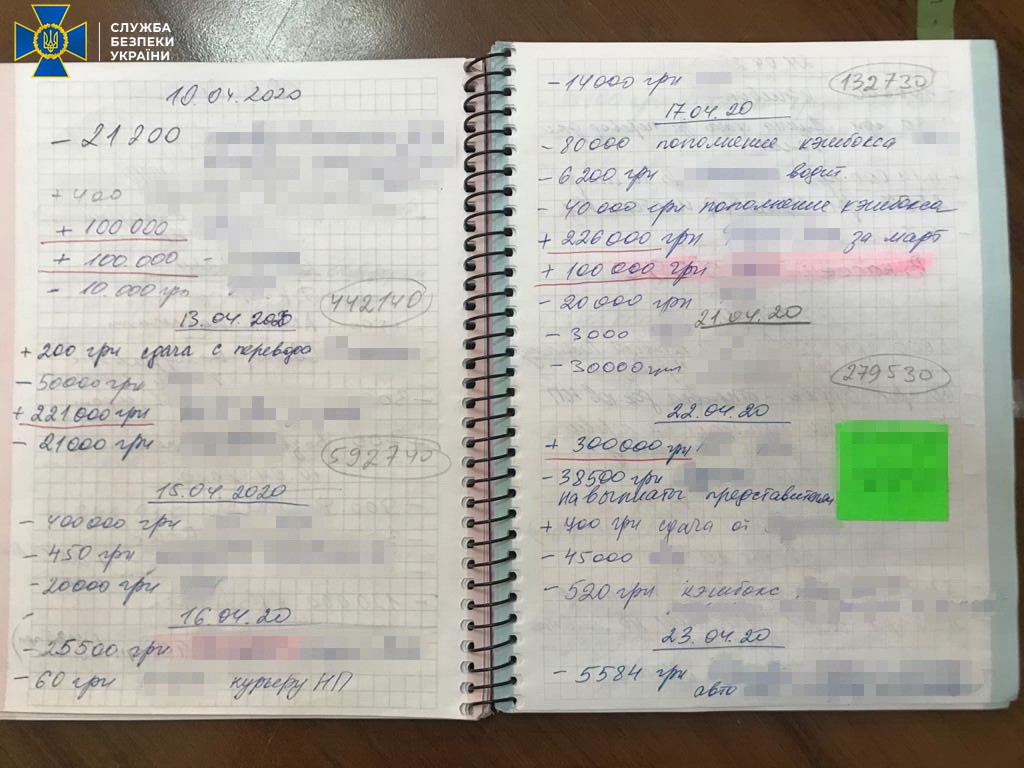 СЛУЖБА
БЕЗПЕКИ
УКРАЇНИ
10.04.2020
- 21 200
+ 400
+ 100 000
+ 100.000 -
- 10.000 грн
442140
13.04.2020
+ 200 грн сдача с перевода
- 50000 грн
+ 221 000 грн
- 21 000 грн
592740
15.04.2020
- 400000 грн
- 450 грн
- 20000 грн
-
16.04.20
- 25500 грн
- 60 грн курьеру НП
- 14000 грн
132730
17.04.20
- 80000 пополнение кэшбокса
- 6 200 грн водит.
- 40 000 грн пополнение кэшбокса
+ 226 000 грн за март
+ 100 000 грн
- 20 000 грн
21.04.20
- 3000
- 30000 грн
279530
22.04.20
+ 300 000 грн
- 38500 грн
на выплаты представителям
+ 400 грн сдача от
- 45000
- 520 грн кэшбокс
23.04.20
- 5584 грн
авто